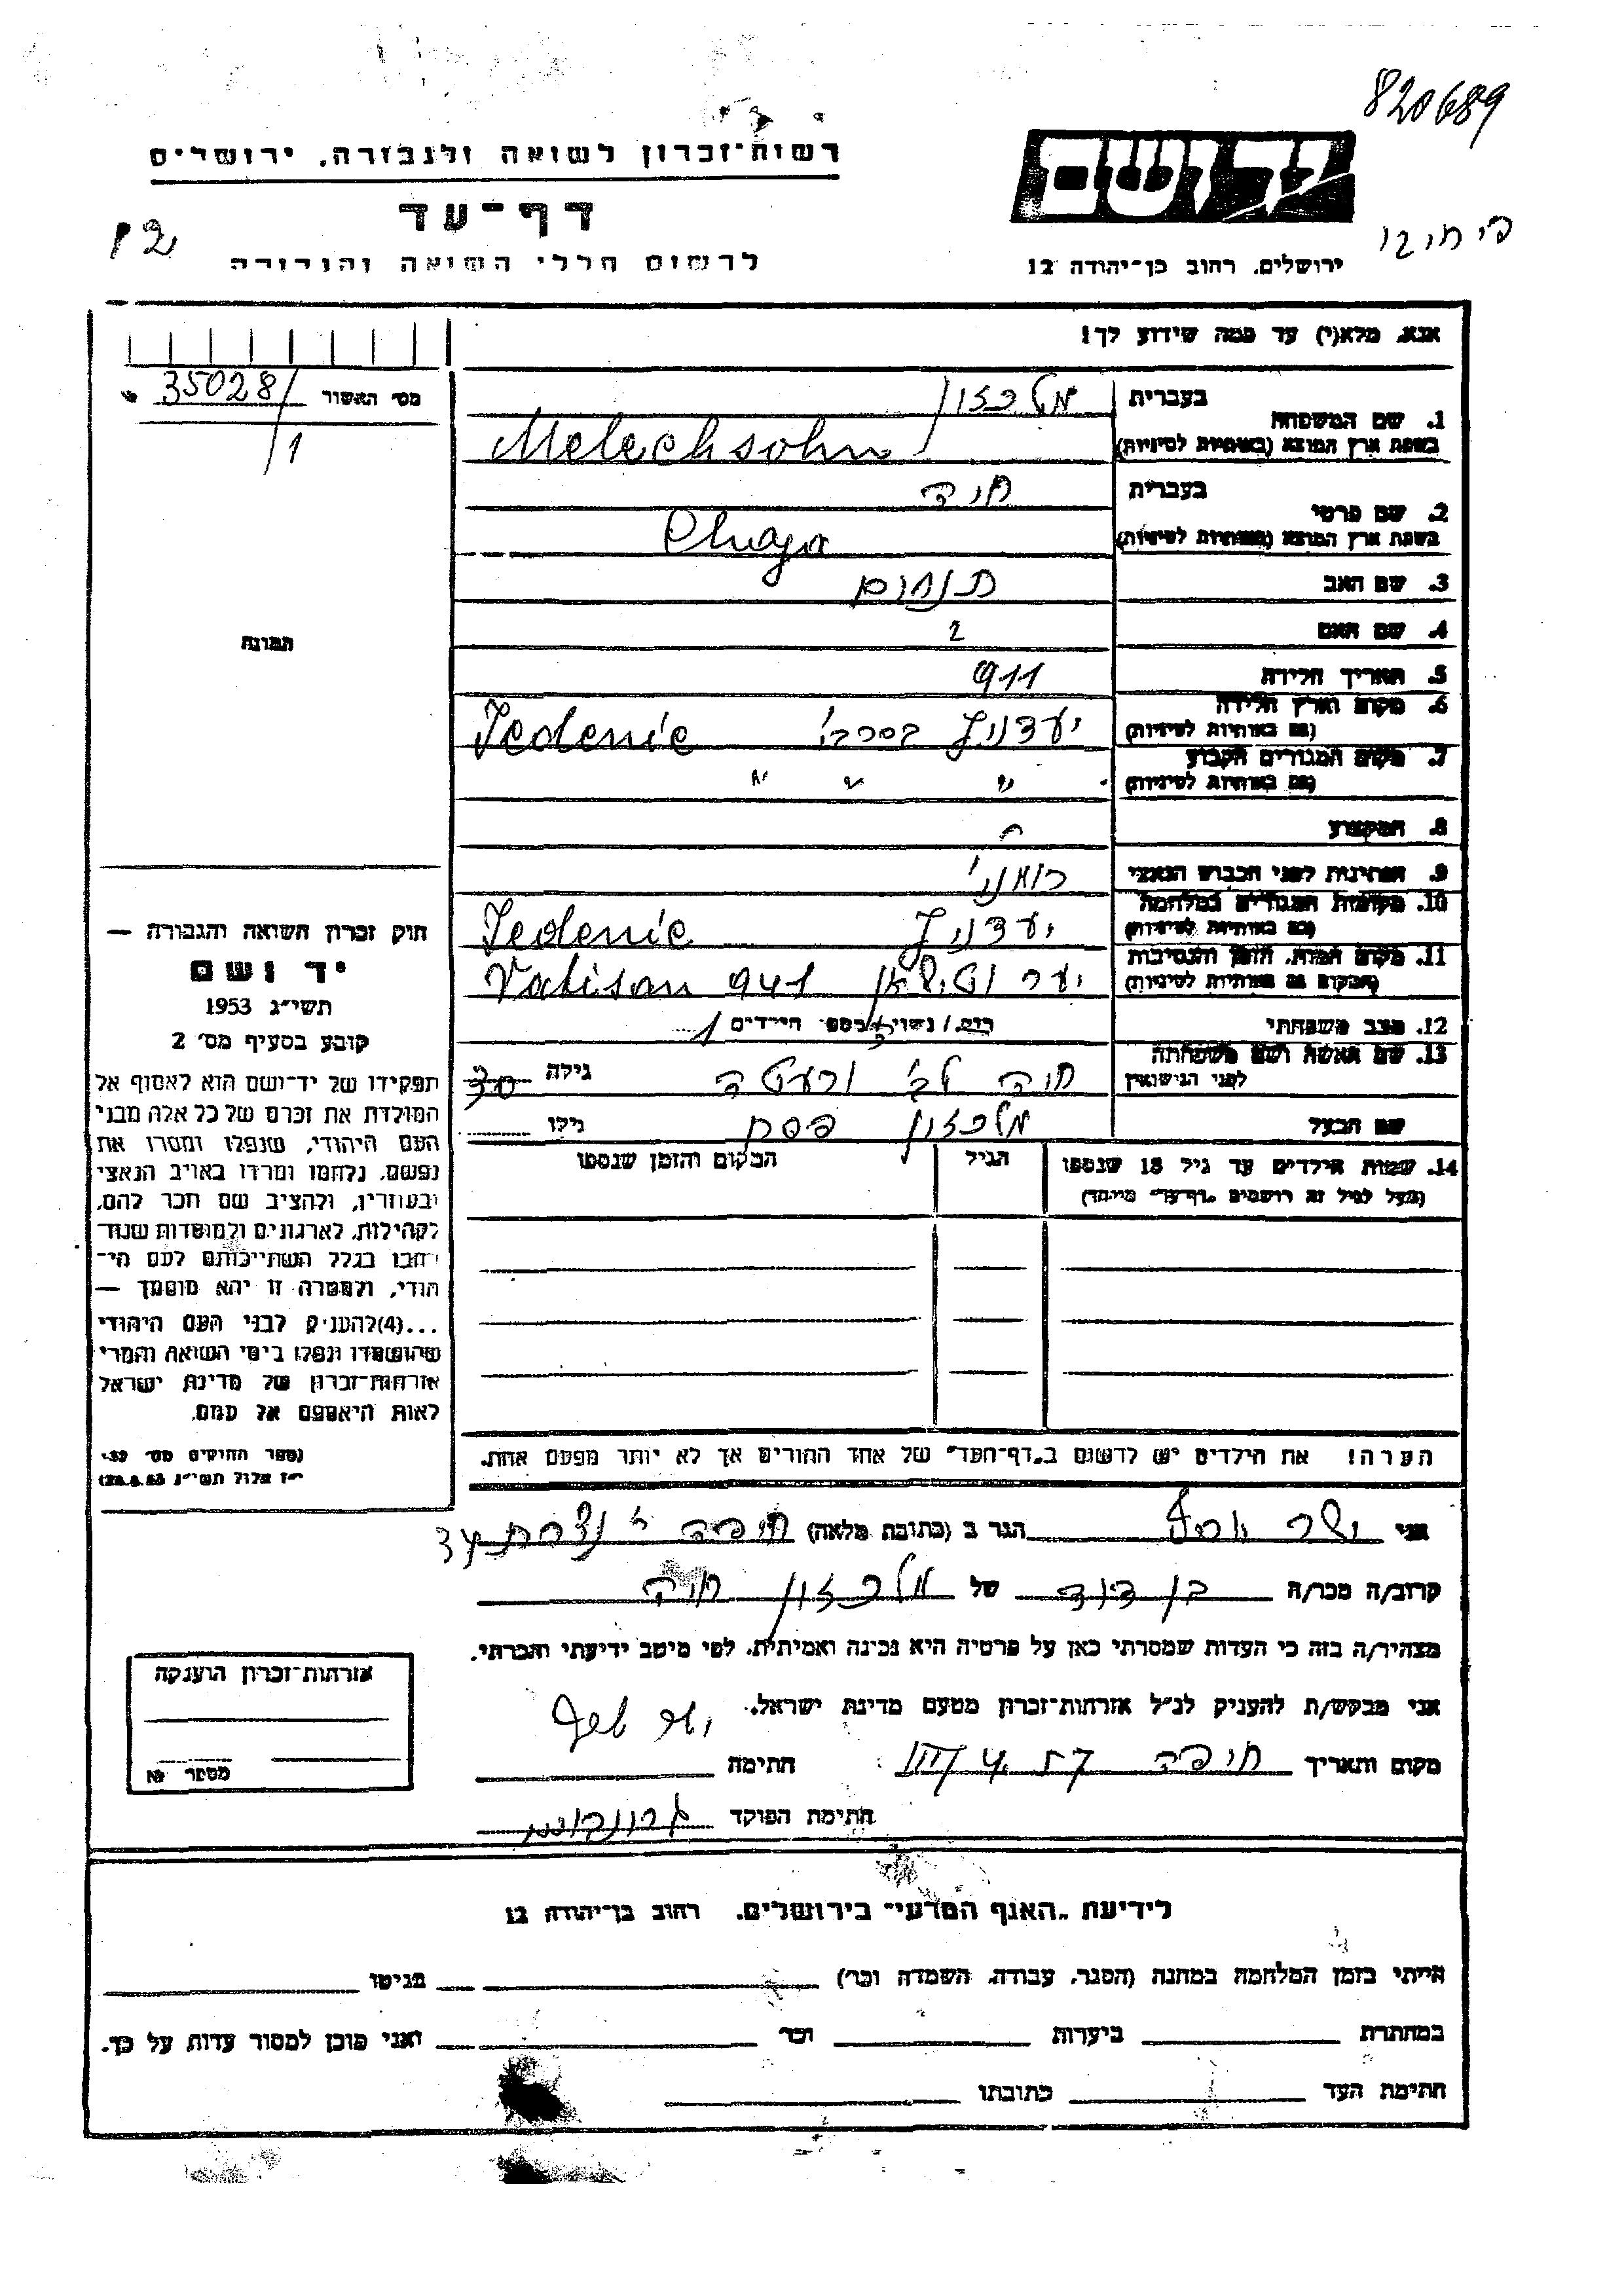 820689
רשות-זכרון לשואה ולגבורה, ירושלים
יד ושם
דף-עד
לרשום חללי השואה והגבורה
ירושלים, רחוב בן-יהודה 12
אנא, מלא(י) עד כמה שידוע לך!
מס' האשור 35028/1
בעברית
1. שם המשפחה
בשפת ארץ המוצא (באותיות לטיניות)
מלכזון
Melechsohn
בעברית
2. שם פרטי
בשפת ארץ המוצא (באותיות לטיניות)
חיה
Chaja
3. שם האב תנחום
4. שם האם
5. תאריך הלידה 911
6. מקום וארץ הלידה
(גם באותיות לטיניות)
יעדניץ בסרבי' Jedenic
7. מקום המגורים הקבוע
(גם באותיות לטיניות)
" " "
8. המקצוע
9. הנתינות לפני הכבוש הנאצי רומני'
10. מקומות המגורים במלחמה
(גם באותיות לטיניות)
יעדניץ Jedenic
11. מקום המות, הזמן והנסיבות
(המקום גם באותיות לטיניות)
יער 941 Vatisan
12. מצב משפחתי רוק/נשוי/ מספר הילדים 1
13. שם האשה ושם משפחתה
לפני הנישואין
חיה גילה 30
שם הבעל מלכזון פסח גילו
14. שמות הילדים עד גיל 18 שנספו
(מעל לגיל זה רושמים "דף-עד" מיוחד)
הגיל
המקום והזמן שנספו
הערה! את הילדים יש לרשום ב"דף-העד" של אחד ההורים אך לא יותר מפעם אחת.
תמונה
חוק זכרון השואה והגבורה —
יד ושם
תשי"ג 1953
קובע בסעיף מס' 2
תפקידו של יד-ושם הוא לאסוף אל
המולדת את זכרם של כל אלה מבני
העם היהודי, שנפלו ומסרו את
נפשם, נלחמו ומרדו באויב הנאצי
ובעוזריו, ולהציב שם וזכר להם,
לקהילות, לארגונים ולמוסדות שנח-
רבו בגלל השתייכותם לעם הי-
הודי, ולמטרה זו יהא מוסמך —
...(4) להעניק לבני העם היהודי
שהושמדו ונפלו בימי השואה והמרי
אזרחות-זכרון של מדינת ישראל
לאות היאספם אל עמם.
(ספר החוקים מס' 132
י"ז אלול תשי"ג 28.8.53)
אני יוסף הגר ב (כתובת מלאה) חיפה 34
קרוב/ה מכר/ה בן דוד של מלכזון חיה
מצהיר/ה בזה כי העדות שמסרתי כאן על פרטיה היא נכונה ואמיתית, לפי מיטב ידיעתי והכרתי.
אני מבקש/ת להעניק לנ"ל אזרחות-זכרון מטעם מדינת ישראל.
מקום ותאריך חיפה חתימה
חתימת הפוקד
אזרחות-זכרון הוענקה
מספר №
לידיעת "האגף המדעי" בירושלים, רחוב בן-יהודה 12
הייתי בזמן המלחמה במחנה (הסגר, עבודה, השמדה וכו') בגיטו
במחתרת ביערות וכו' ואני מוכן למסור עדות על כך.
חתימת העד כתובתו